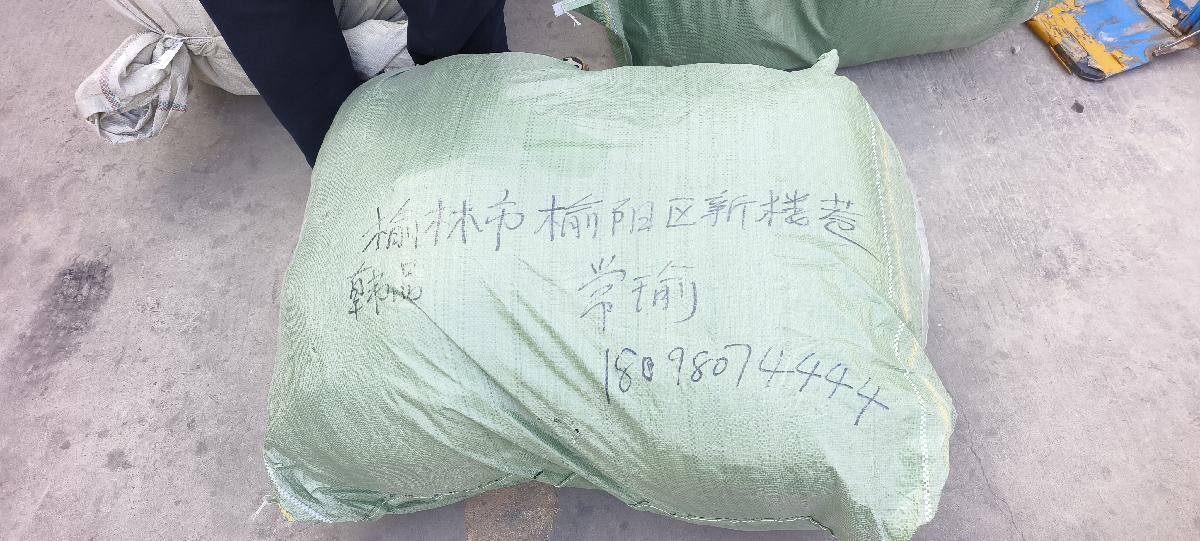 榆林市榆阳区新楼巷
韩品
常瑜
18098074444